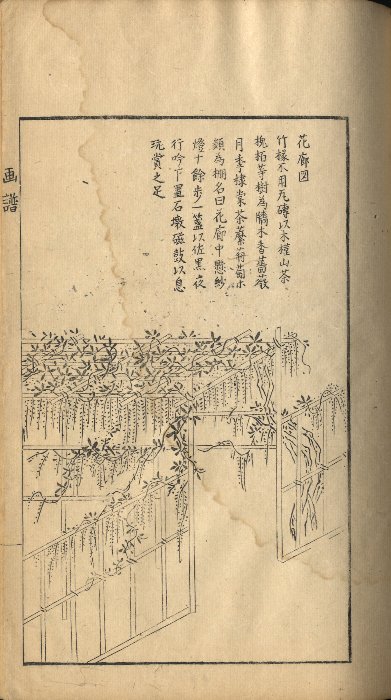 花廊図
竹椽不用瓦磚以木槿山茶
槐柏等樹為牆木香薔薇
月季棣棠荼蘼葡萄木
頭為棚名曰花廊中懸紗
燈十餘歩一盞以佐黒夜
行吟下置石墩磁鼓以息
玩賞之足
画譜